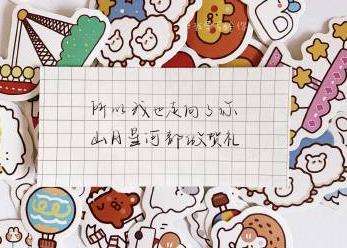 所以我也走向了你
山月星河都做贺礼